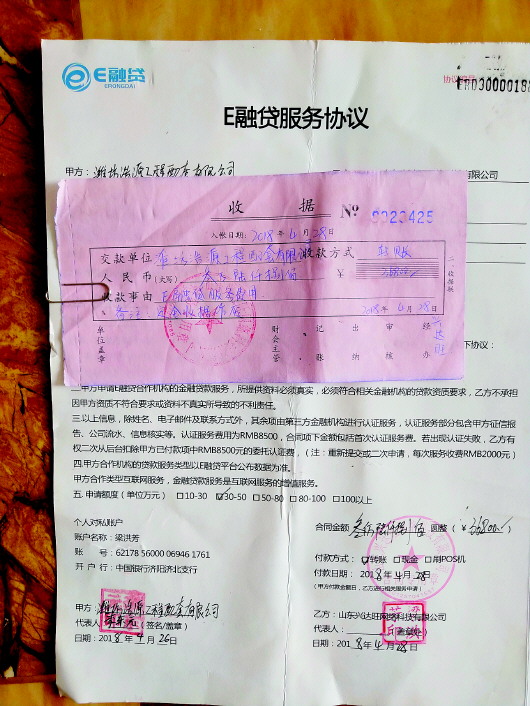 E融贷
ERONGDAI
E融贷服务协议
甲方：
有限公司
收 据
№ 0023425
入帐日期：2018年4月28日
交款单位
收款方式 转账
人民币（大写）
¥
收款事由 E融贷服务费用
备注：
2018年4月28日
单位盖章
财会主管
记账
出纳
审核
经办
二：收据联
下协议：
二.甲方申请E融贷合作机构的金融贷款服务，所提供资料必须真实，必须符合相关金融机构的贷款资质要求，乙方不承担
因甲方资质不符合要求或资料不真实所导致的不利责任。
三.以上信息，除姓名、电子邮件及联系方式外，其余项由第三方金融机构进行认证服务，认证服务部分包含甲方征信报
告、公司流水、信息核实等。认证服务费用为RMB8500，合同项下金额包括首次认证服务费。若出现认证失败，乙方有
权二次从后台扣除甲方已付款项中RMB8500元的委托认定费，（注：重新提交或二次申请，每次服务收费RMB2000元）
四.甲方合作机构的贷款服务类型以E融贷平台公布数据为准。
甲方合作类型互联网服务，金融贷款服务是互联网服务的增值服务。
五. 申请额度（单位万元） □10-30 ☑30-50 □50-80 □80-100 □100以上
个人对私账户
账户名称：梁洪芳
账 号：62178 56000 06946 1761
开 户 行：中国银行济阳济北支行
合同金额 圆整（¥36800）
付款方式：☑转账 □现金 □刷POS机
付款日期：2018年4月28日
（甲方付款金额日，乙方进行相关服务申请）
甲方：
代表人： （签名/盖章）
日期：2018年4月26日
乙方：山东兴达旺网络科技有限公司
代表人： （盖章处）
日期：2018年4月28日